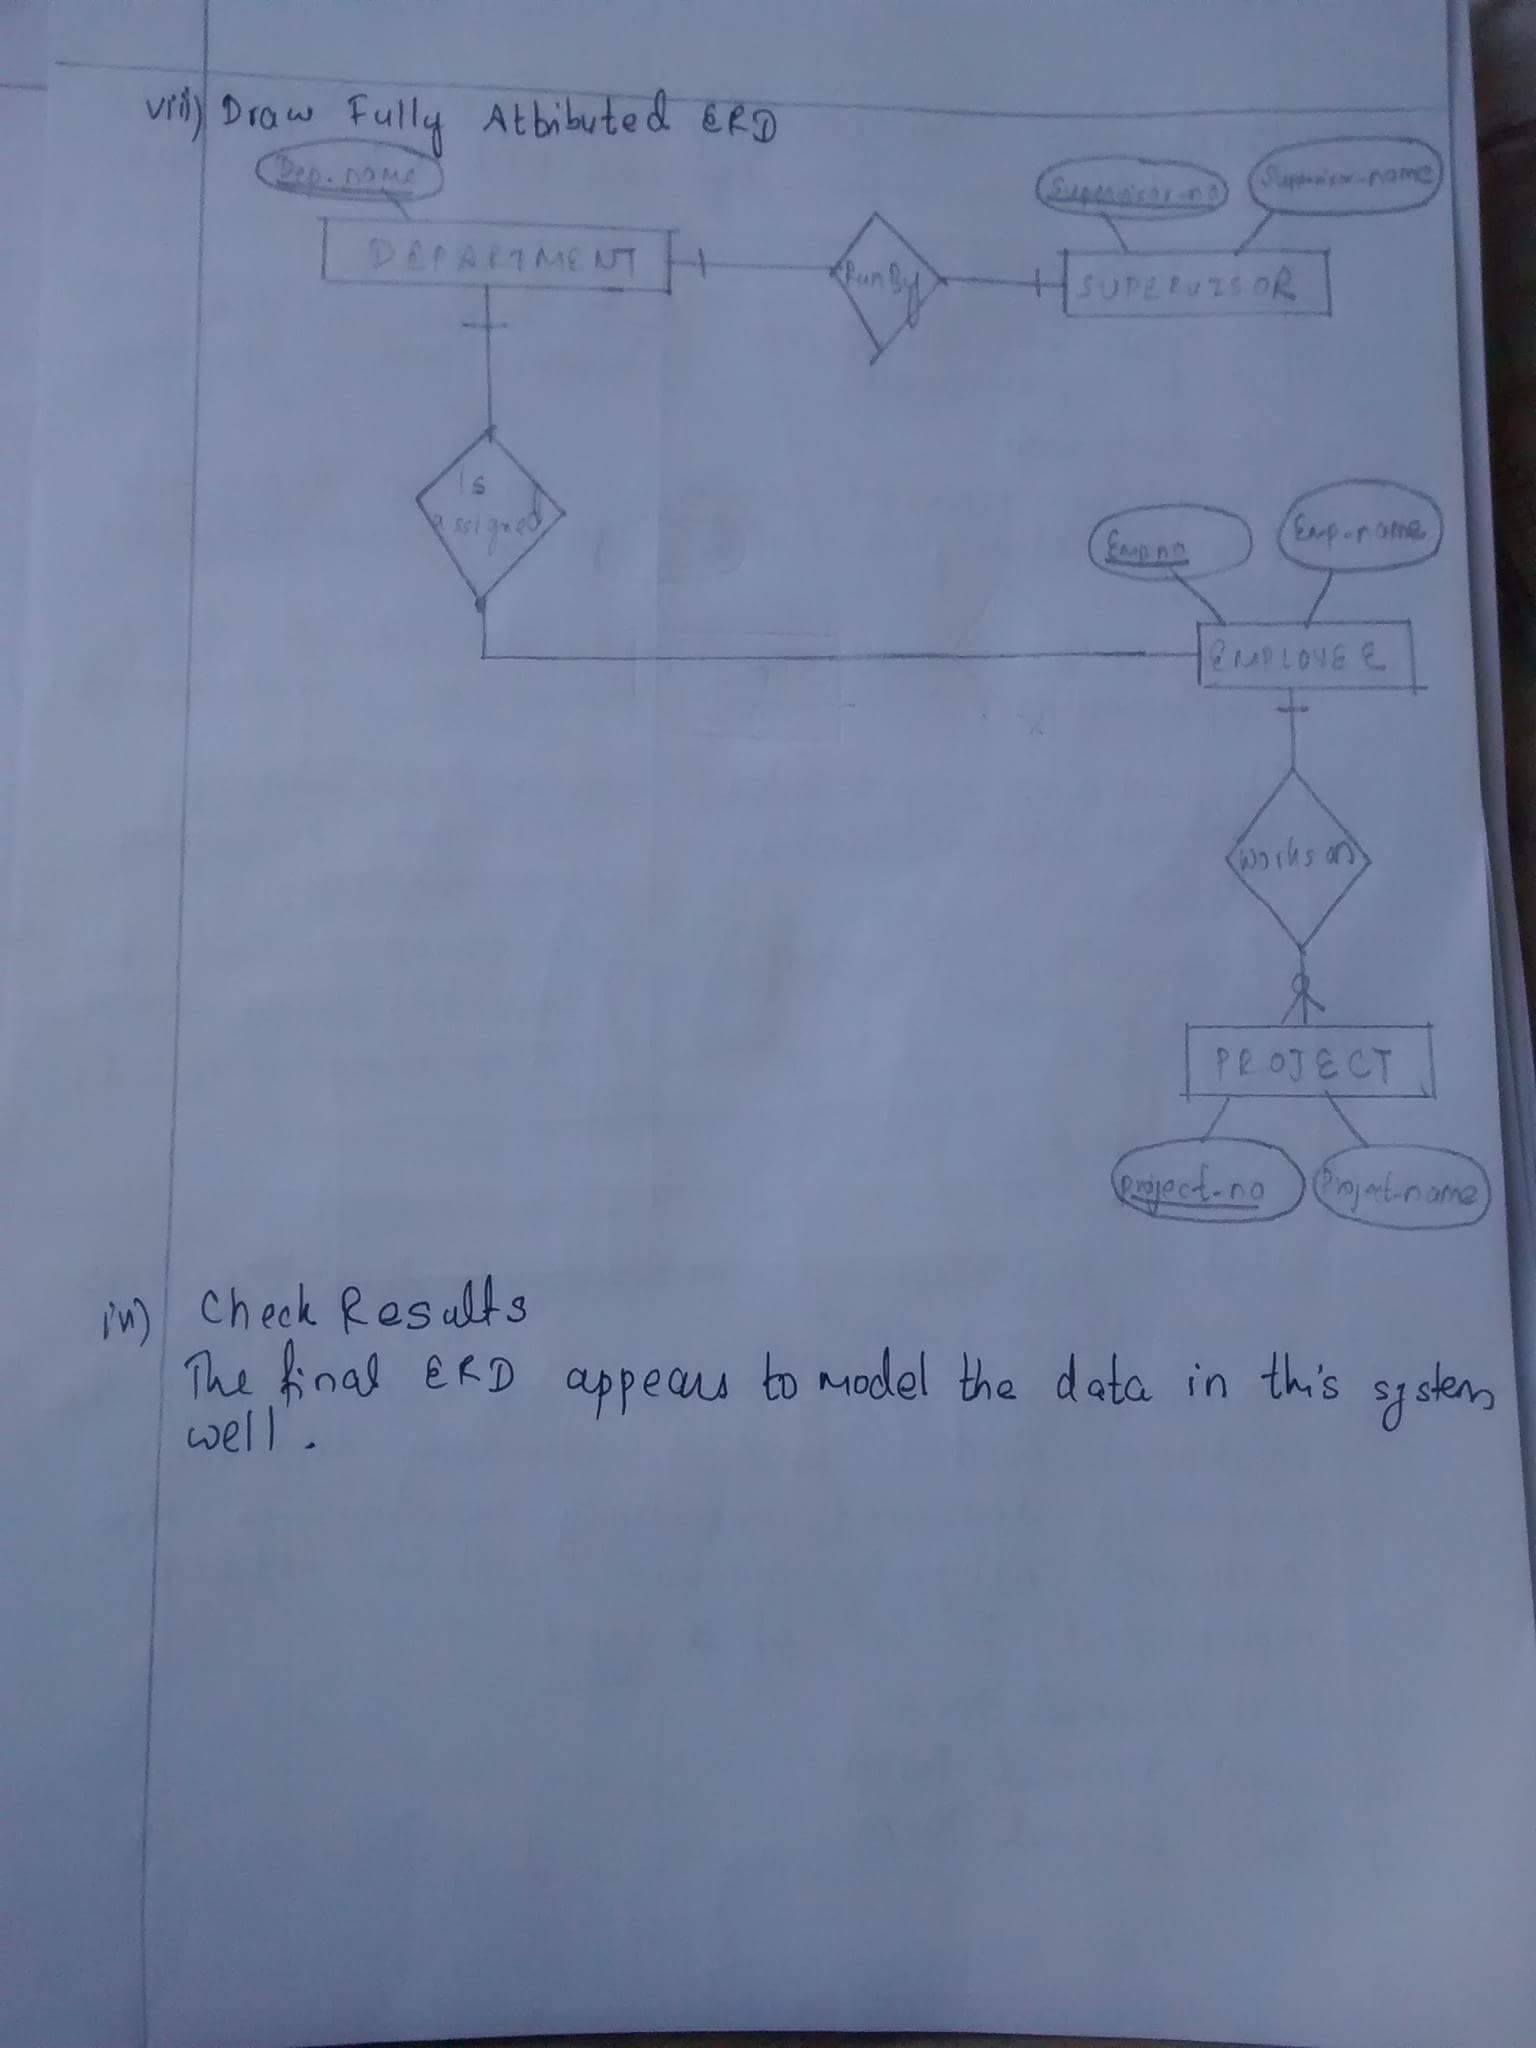 viii) Draw Fully Attributed ERD
Dep. name
Supervisor-no
Supervisor-name
DEPARTMENT
Run By
SUPERVISOR
Is
assigned
Emp no
Emp-name
EMPLOYEE
works on
PROJECT
Project-no
Project-name
ix) Check Results
The final ERD appears to model the data in this system
well.